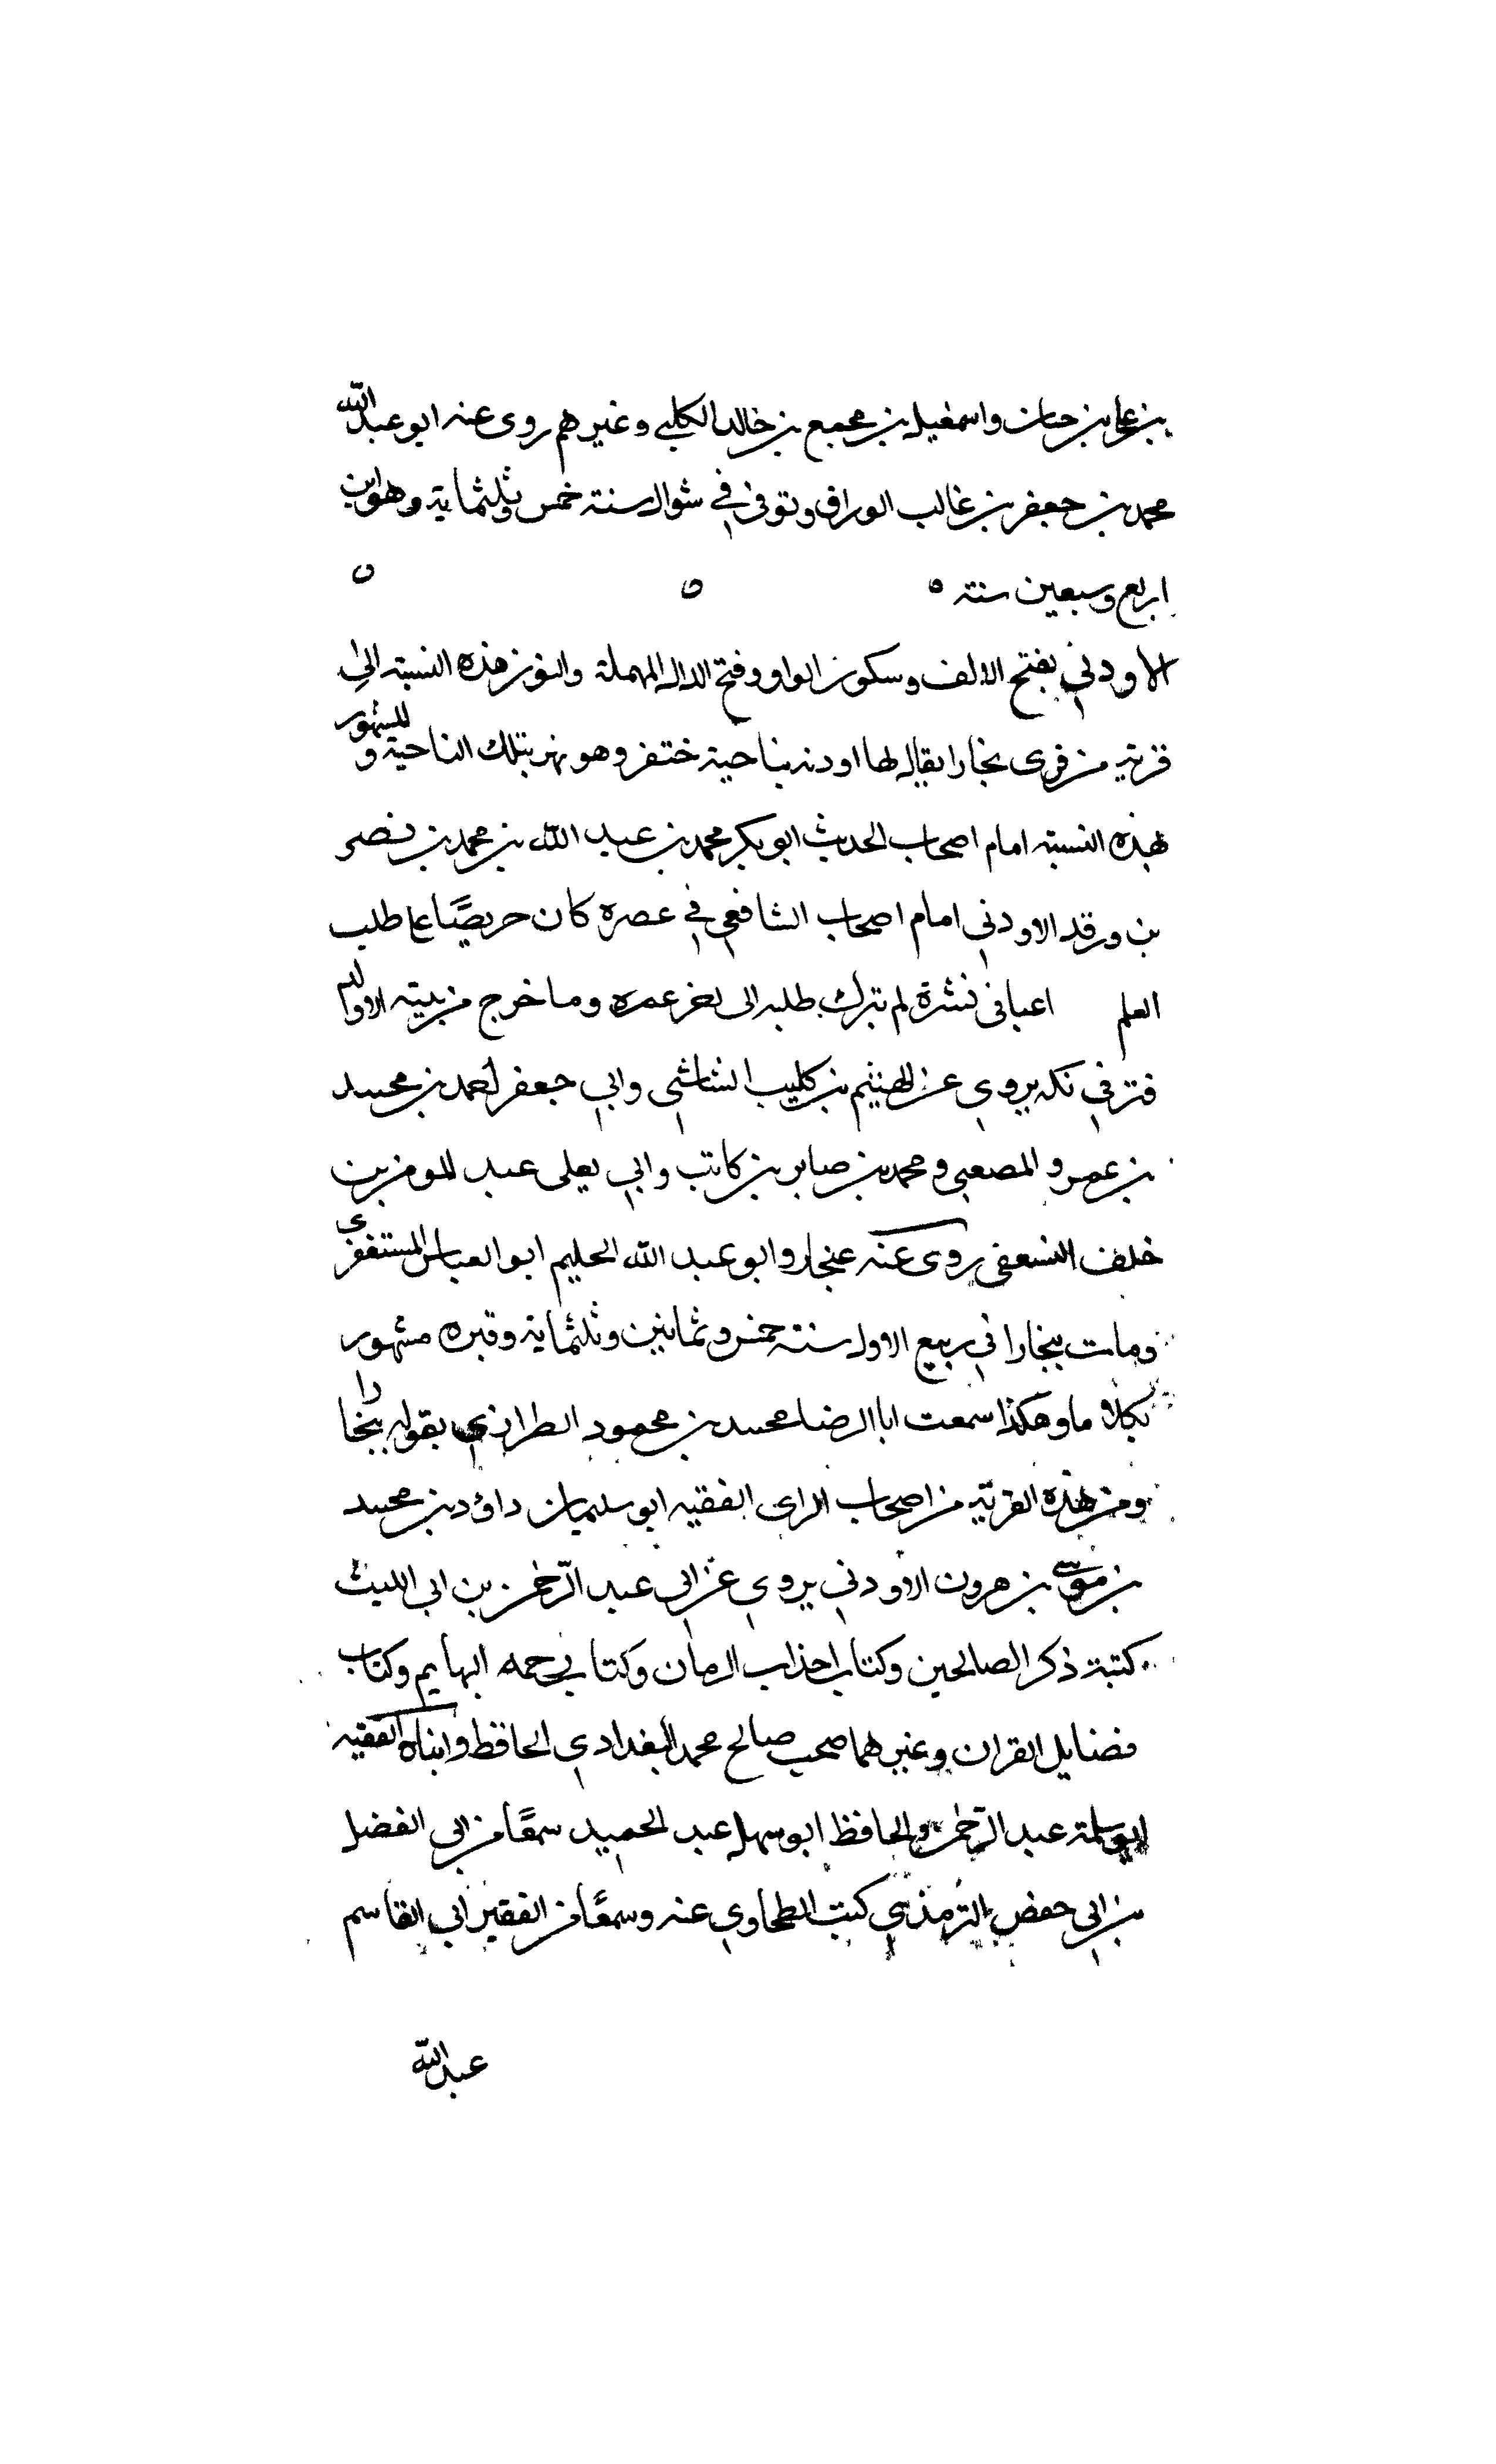 بن علي بن حيان واسمعيل بن مجمع بن خالد الكلبي وغيرهم روى عنه ابو عبد الله
محمد بن جعفر بن غالب الوراق وتوفي في شوال سنة خمس وثلثماية وهو ابن
اربع وسبعين سنة ٥ ٥ ٥
الاودني بفتح الالف وسكون الواو وفتح الدال المهملة والنون هذه النسبة الى
قرية من قرى بخارا يقال لها اودنه بناحية ختفر وهو نهر بتلك الناحية والمشهور
بهذه النسبة امام اصحاب الحديث ابو بكر محمد بن عبد الله بن محمد بن نصر
بن ورقد الاودني امام اصحاب الشافعي في عصره كان حريصًا على طلب
العلم نشره لم يترك طلبه الى اخر عمره وما خرج من بيته الا والم
يروي عن الهيثم بن كليب الشاشي وابي جعفر احمد بن محمد
بن عمرو المصعبي ومحمد بن صابر بن كاتب وابي يعلى عبد المومن بن
خلف النسفي روى عنه غنجار وابو عبد الله الحليم ابو العباس المستغفري
ومات ببخارا في ربيع الاول سنة خمس وثمانين وثلثماية وقبره مشهور
بكلاه ماو هكذا سمعت ابا الرضا محمد بن محمود الطرازي يقول ببخارا
ومن هذه القرية من اصحاب الراى الفقيه ابو سليمان داؤد بن محمد
بن موسى بن هرون الاودني يروي عن ابي عبد الرحمن بن ابي الليث
كتبة ذكر الصالحين وكتاب احداب الزمان وكتاب البهايم وكتاب
فضايل القران وغيرهما صحب صالح محمد البغدادي الحافظ وابناه الفقيه
ابو سلمة عبد الرحمن والحافظ ابو سهل عبد الحميد سمعًا من ابي الفضل
بن ابي حفص الترمذي كتب الطحاوي عنه وسمعًا من الفقير ابي القاسم
عبد الله